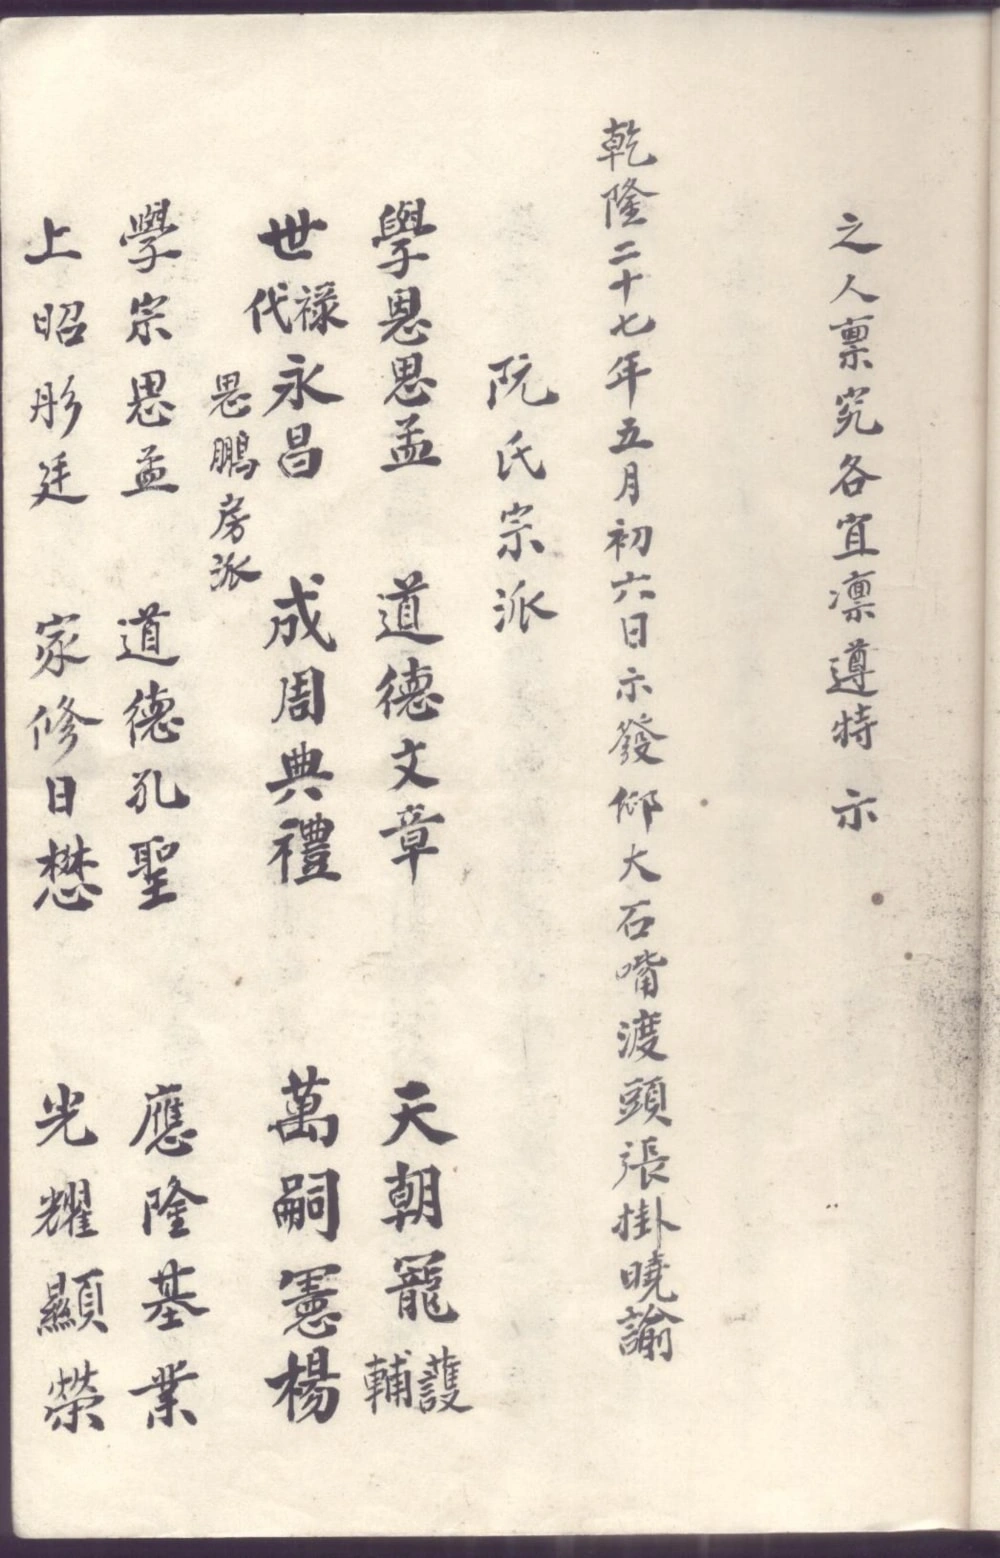 之人稟究各宜凛遵特示
乾隆二十七年五月初六日示發仰大石嘴渡頭張掛曉諭
阮氏宗派
學恩思孟 道德文章 天朝寵護輔
世禄代永昌 成周典禮 萬嗣憲楊
思鵬房派
學宗思孟 道德孔聖 應隆基業
上昭彤廷 家修日懋 光耀顯榮